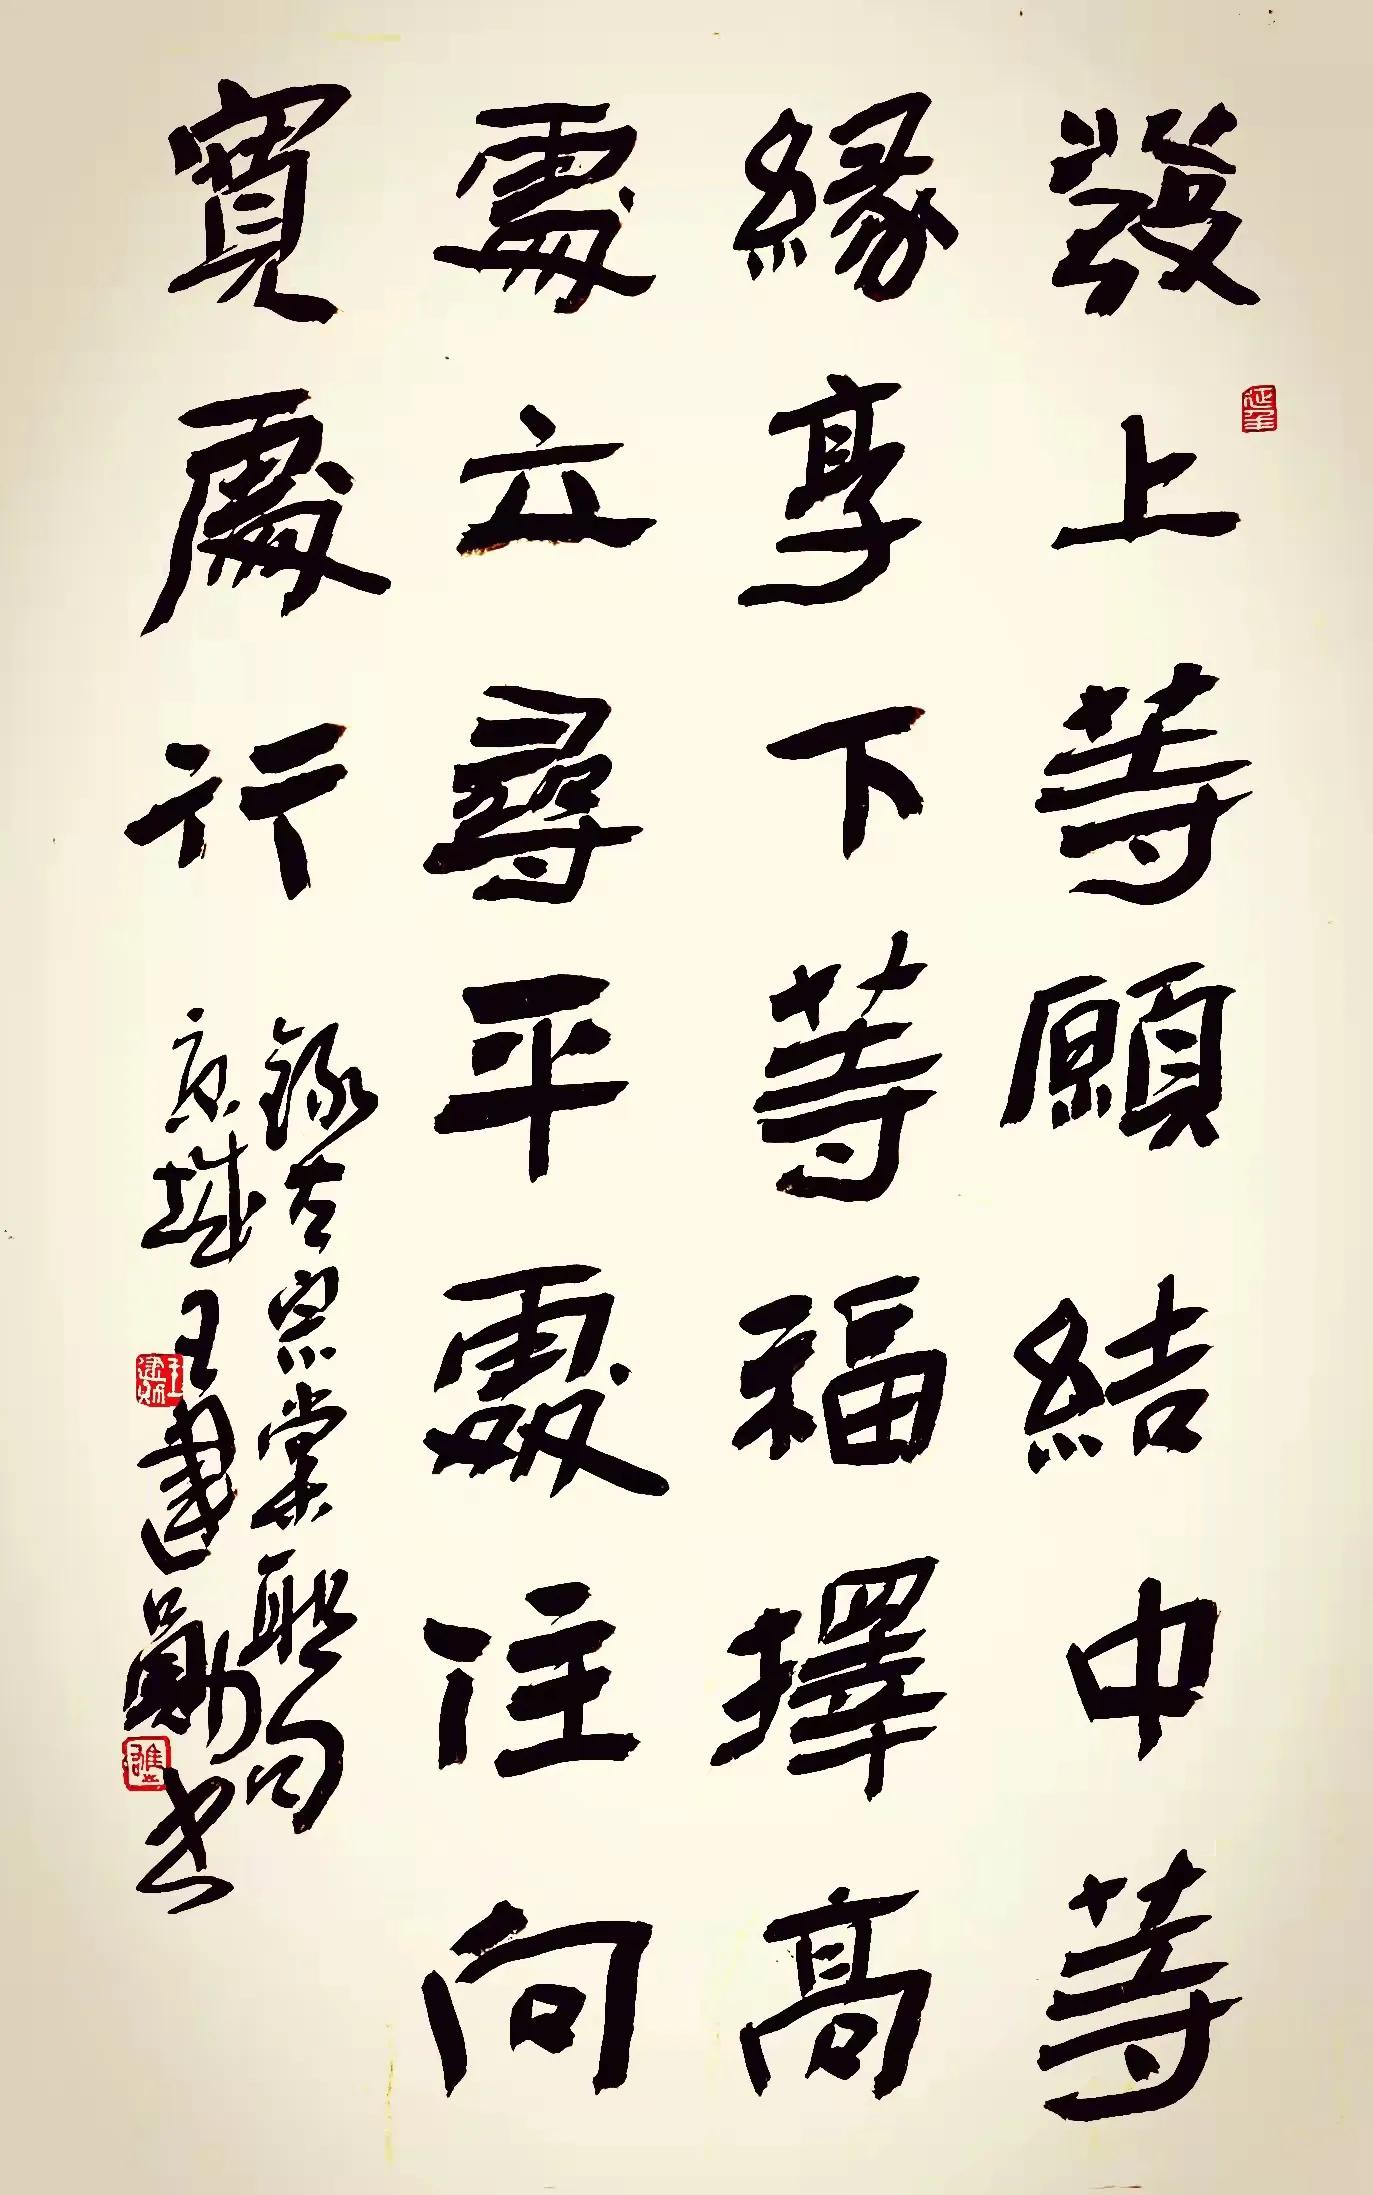 發上等願結中等
緣享下等福擇高
處立尋平處住向
寬處行
錄左宗棠聯句
京城王建勛书
延年